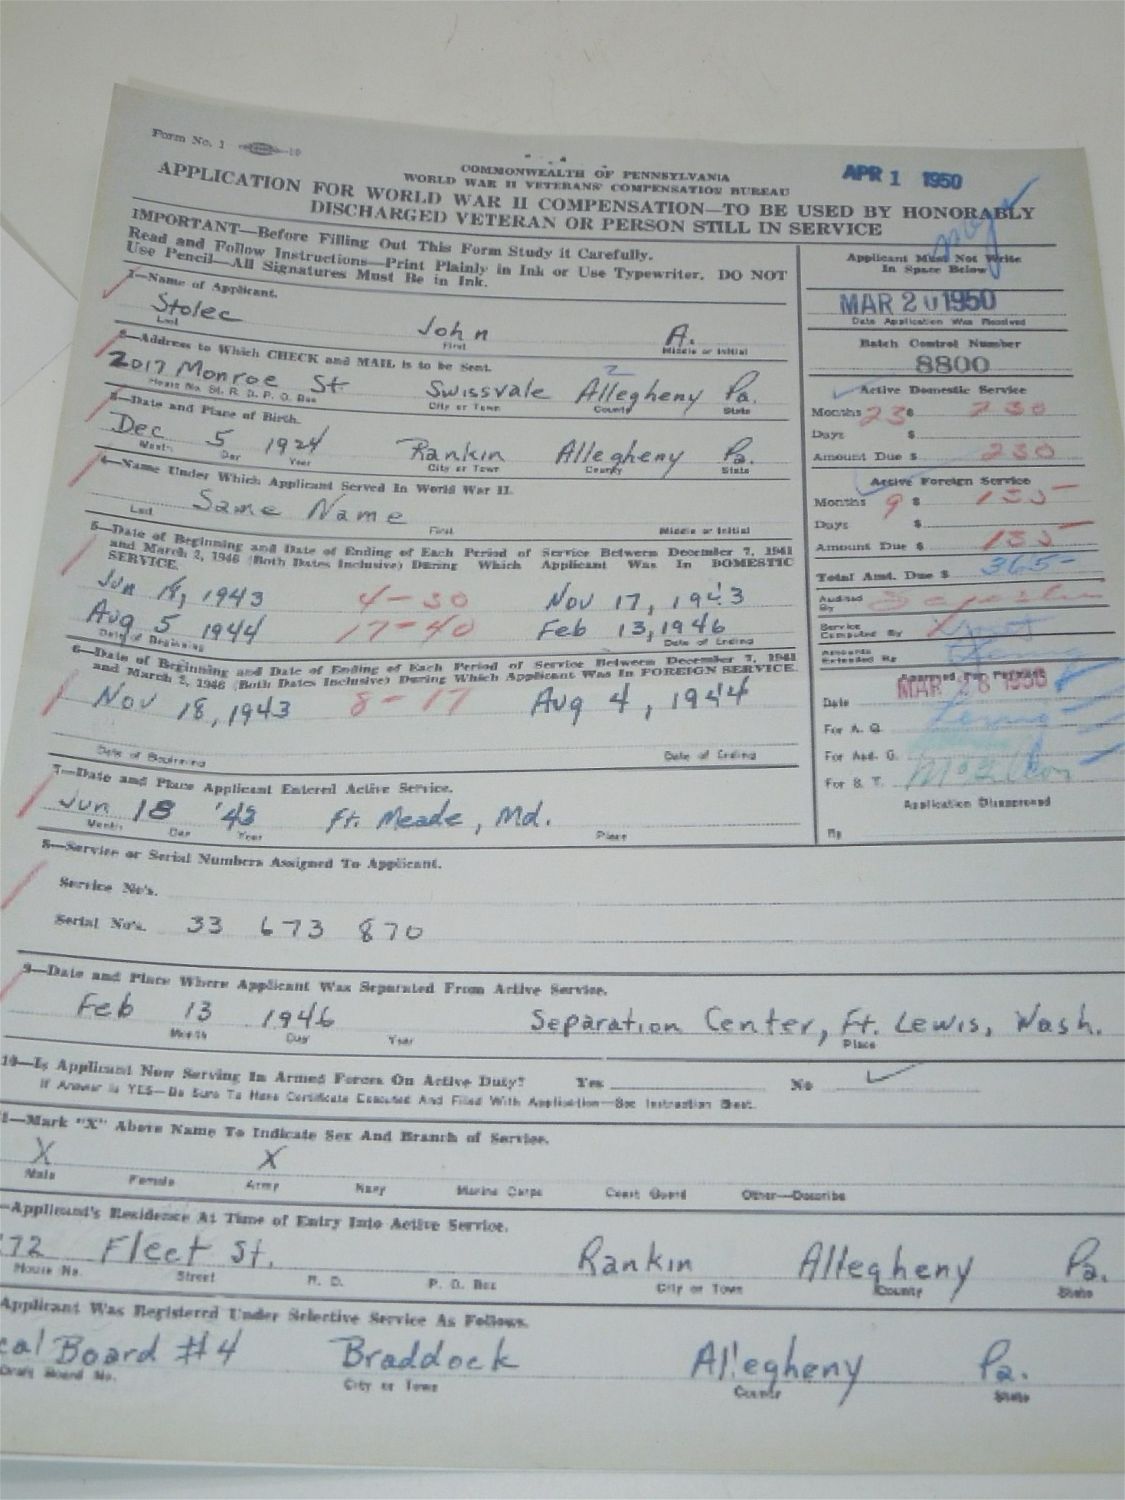 Form No. 1
COMMONWEALTH OF PENNSYLVANIA
WORLD WAR II VETERANS' COMPENSATION BUREAU
APR 1 1950
APPLICATION FOR WORLD WAR II COMPENSATION—TO BE USED BY HONORABLY
DISCHARGED VETERAN OR PERSON STILL IN SERVICE
IMPORTANT—Before Filling Out This Form Study it Carefully.
Read and Follow Instructions—Print Plainly in Ink or Use Typewriter. DO NOT
Use Pencil—All Signatures Must Be in Ink.
Applicant Must Not Write
In Space Below
MAR 20 1950
Date Application Was Received
Batch Control Number
8800
Active Domestic Service
Months 23 $ 230
Days $
Amount Due $ 230
Active Foreign Service
Months 9 $ 135—
Days $
Amount Due $ 135—
Total Amt. Due $ 365—
Audited
By
Service
Computed By
Amounts
Extended By
Approved For Payment
MAR 28 1950
Date
For A. G.
For Aud. G.
For S. T.
Application Disapproved
By
1—Name of Applicant.
Stolec John A.
Last First Middle or Initial
2—Address to Which CHECK and MAIL is to be Sent.
2017 Monroe St Swissvale Allegheny Pa.
House No. St. R. D. P. O. Box City or Town County State
3—Date and Place of Birth.
Dec 5 1924 Rankin Allegheny Pa.
Month Day Year City or Town County State
4—Name Under Which Applicant Served In World War II.
Same Name
Last First Middle or Initial
5—Date of Beginning and Date of Ending of Each Period of Service Between December 7, 1941
and March 2, 1946 (Both Dates Inclusive) During Which Applicant Was In DOMESTIC
SERVICE.
Jun 18, 1943 4-30 Nov 17, 1943
Aug 5 1944 17-40 Feb 13, 1946
Date of Beginning Date of Ending
6—Date of Beginning and Date of Ending of Each Period of Service Between December 7, 1941
and March 2, 1946 (Both Dates Inclusive) During Which Applicant Was In FOREIGN SERVICE.
Nov 18, 1943 8-17 Aug 4, 1944
Date of Beginning Date of Ending
7—Date and Place Applicant Entered Active Service.
Jun 18 '43 Ft. Meade, Md.
Month Day Year Place
8—Service or Serial Numbers Assigned To Applicant.
Service No's.
Serial No's. 33 673 870
9—Date and Place Where Applicant Was Separated From Active Service.
Feb 13 1946 Separation Center, Ft. Lewis, Wash.
Month Day Year Place
10—Is Applicant Now Serving In Armed Forces On Active Duty? Yes No ✓
If Answer is YES—Be Sure To Have Certificate Executed And Filed With Application—See Instruction Sheet.
1—Mark "X" Above Name To Indicate Sex And Branch of Service.
X X
Male Female Army Navy Marine Corps Coast Guard Other—Describe
—Applicant's Residence At Time of Entry Into Active Service.
72 Fleet St. Rankin Allegheny Pa.
House No. Street R. D. P. O. Box City or Town County State
Applicant Was Registered Under Selective Service As Follows.
cal Board #4 Braddock Allegheny Pa.
Draft Board No. City or Town County State